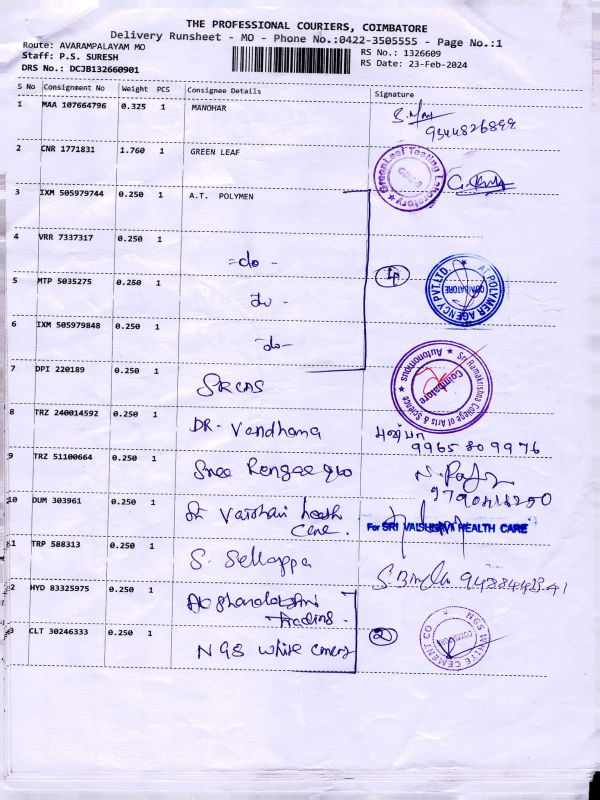 THE PROFESSIONAL COURIERS, COIMBATORE
Delivery Runsheet - MO - Phone No.:0422-3505555 - Page No.:1
Route: AVARAMPALAYAM MO
RS No.: 1326609
Staff: P.S. SURESH
RS Date: 23-Feb-2024
DRS No.: DCJB132660901
S No Consignment No Weight PCS Consignee Details Signature
1 MAA 107664796 0.325 1 MANOHAR
9344826899
2 CNR 1771831 1.760 1 GREEN LEAF
GreenLeaf Testing Laboratory
3 IXM 505979744 0.250 1 A.T. POLYMEN
4 VRR 7337317 0.250 1
-do-
4
AT POLYMER AGENCY PVT.LTD. COIMBATORE
5 MTP 5035275 0.250 1
do -
6 IXM 505979848 0.250 1
-do-
7 DPI 220189 0.250 1 SRCAS
Sri Ramakrishna College of Arts & Science Autonomous Coimbatore
8 TRZ 240014592 0.250 1 DR. Vandhana
9965809976
9 TRZ 51100664 0.250 1 Sree Rengaa
10 DUM 303961 0.250 1 Sri Vaishnavi health
care.
For SRI VAISHNAVI HEALTH CARE
1 TRP 588313 0.250 1 S. Sellappa
2 HYD 83325975 0.250 1
Trading.
3 CLT 30246333 0.250 1 NGS white cement
2
NGS WHITE CEMENT CO